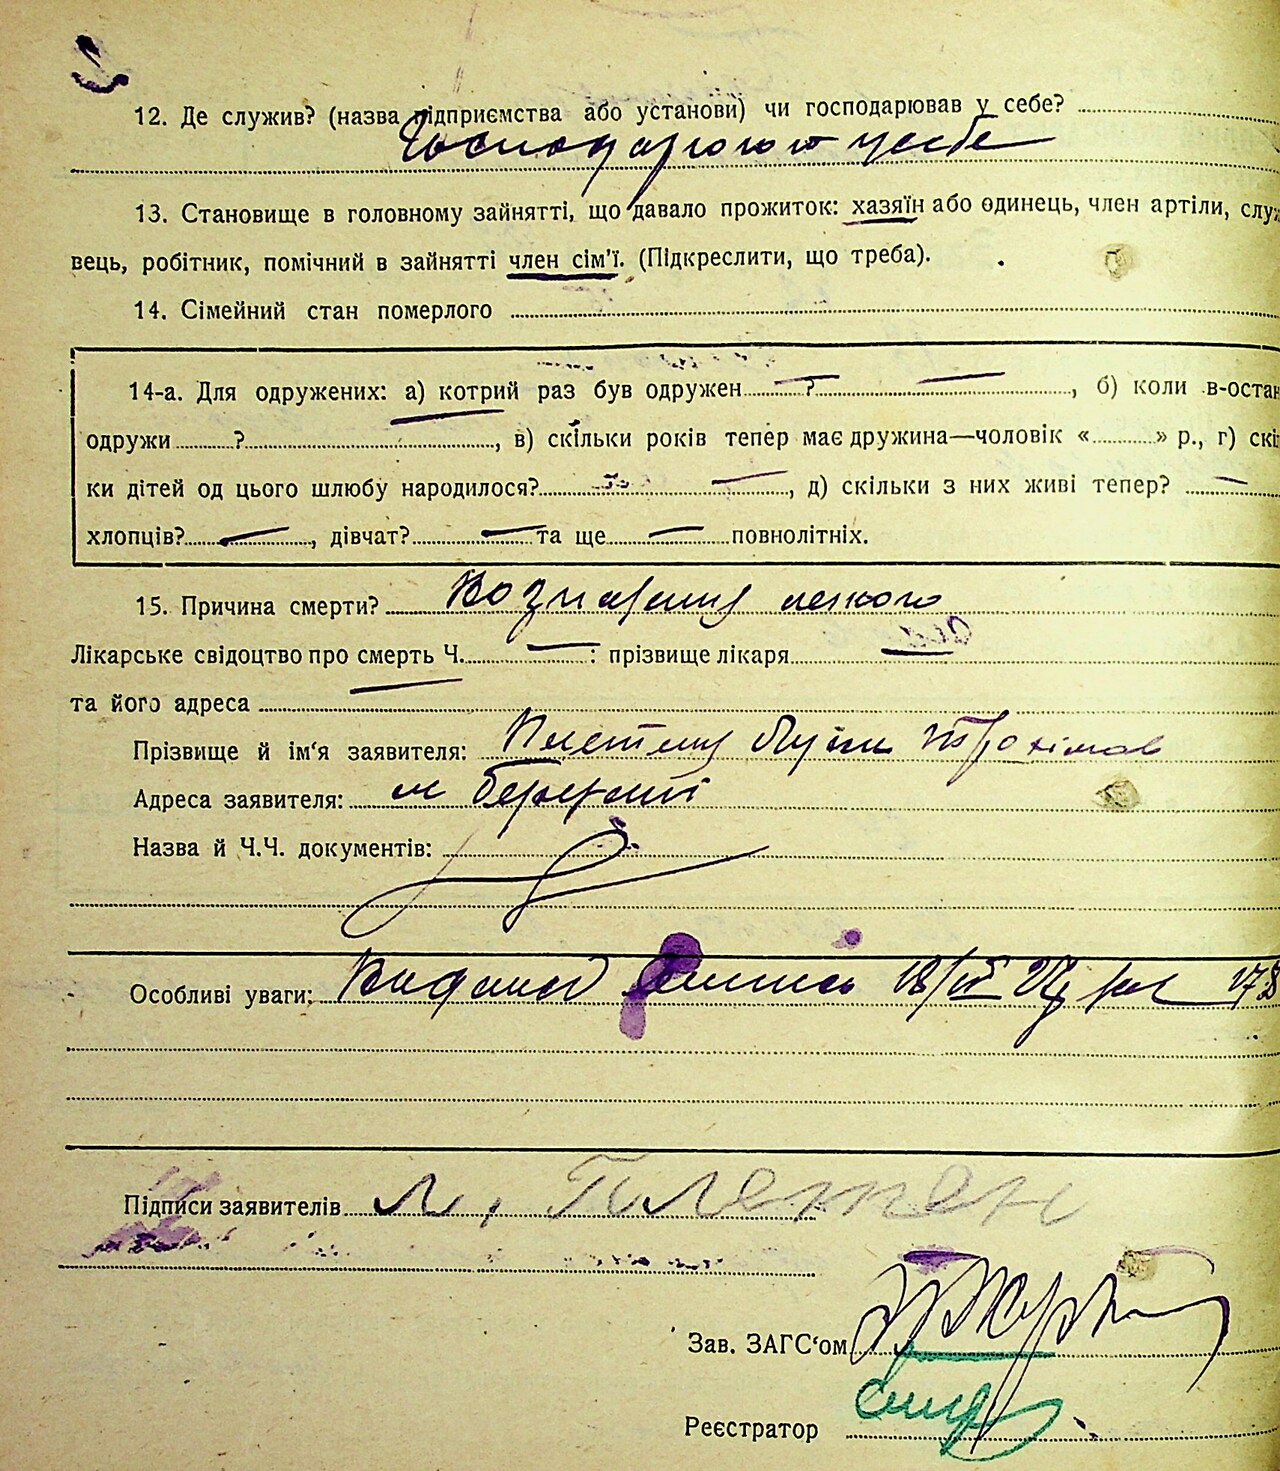 12. Де служив? (назва підприємства або установи) чи господарював у себе?
Господарював у себе
13. Становище в головному зайнятті, що давало прожиток: хазяїн або одинець, член артіли, служ
вець, робітник, помічний в зайнятті член сім'ї. (Підкреслити, що треба).
14. Сімейний стан померлого
14-а. Для одружених: а) котрий раз був одружен ?, б) коли в-остан
одружи ?, в) скільки років тепер має дружина—чоловік « » р., г) скі
ки дітей од цього шлюбу народилося? —, д) скільки з них живі тепер? —
хлопців? —, дівчат? — та ще — повнолітніх.
15. Причина смерти? легкого
Лікарське свідоцтво про смерть Ч. — : прізвище лікаря —
та його адреса
Прізвище й ім'я заявителя:
Адреса заявителя: м
Назва й Ч.Ч. документів:
Особливі уваги:
Підписи заявителів
Зав. ЗАГС'ом
Реєстратор